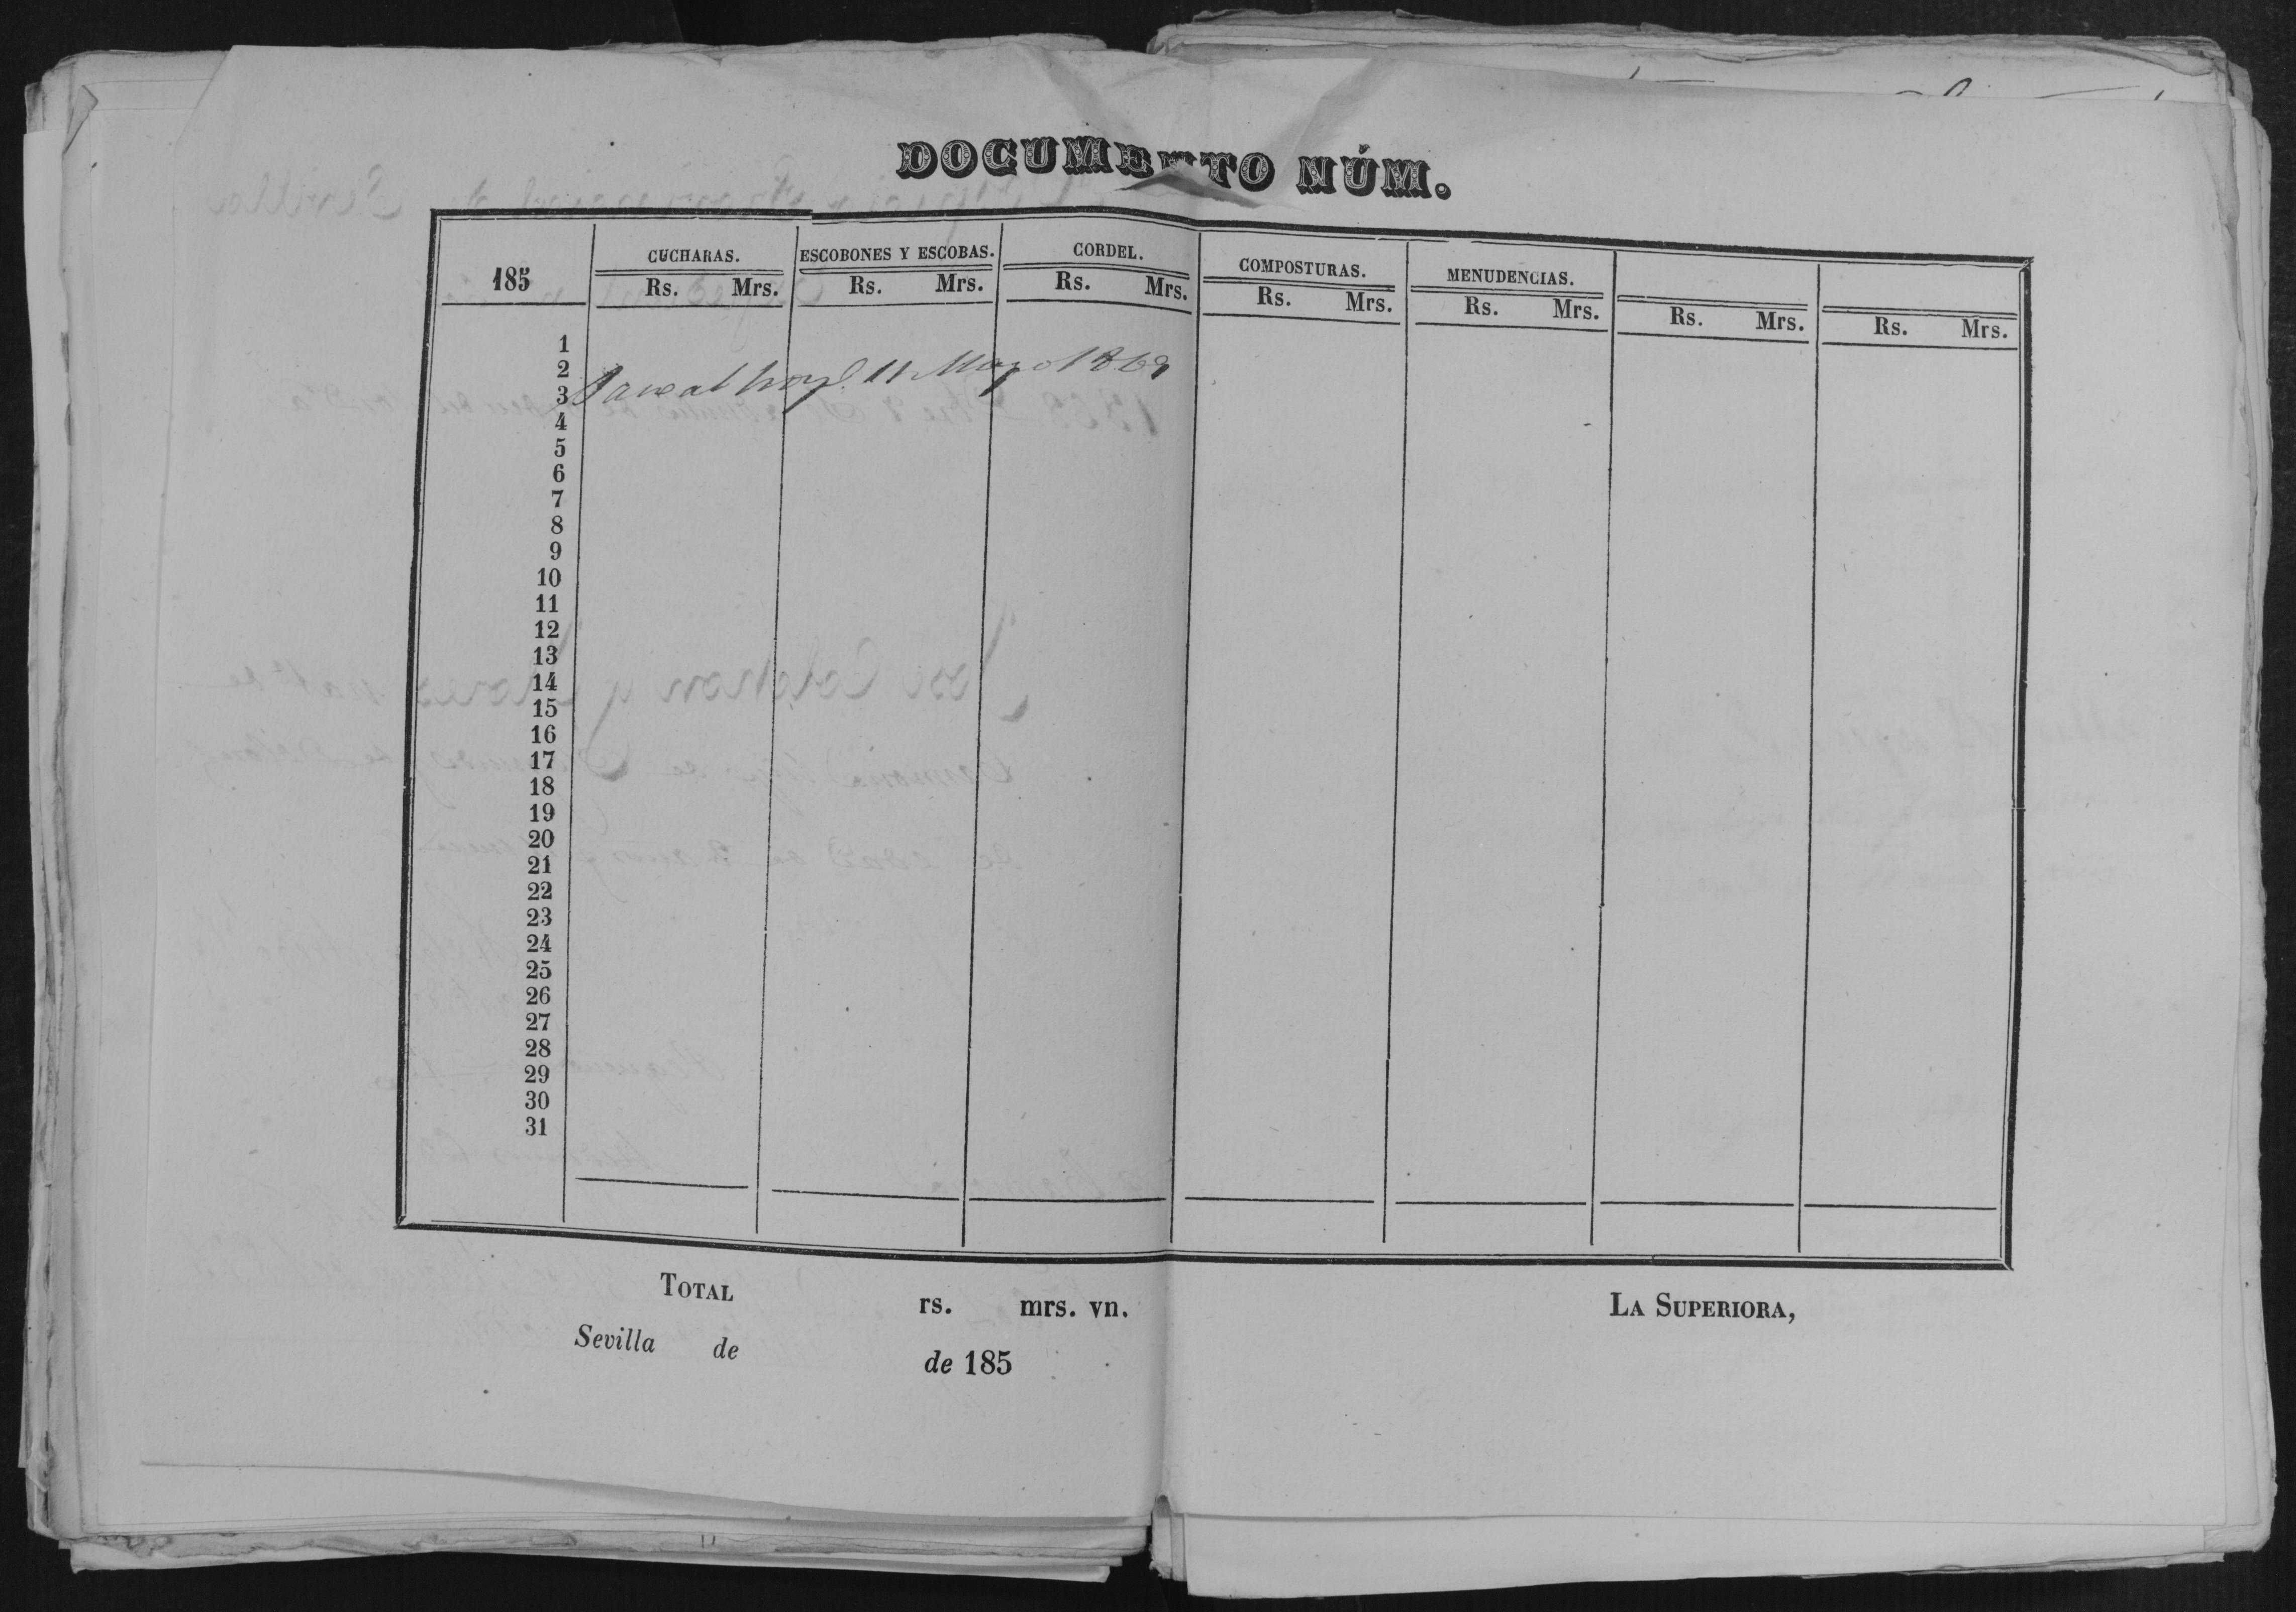 DOCUMENTO NÚM.
185 CUCHARAS. ESCOBONES Y ESCOBAS. CORDEL. COMPOSTURAS. MENUDENCIAS.
Rs. Mrs. Rs. Mrs. Rs. Mrs. Rs. Mrs. Rs. Mrs. Rs. Mrs. Rs. Mrs.
1
2
3
11 Mayo 1869
4
5
6
7
8
9
10
11
12
13
14
15
16
17
18
19
20
21
22
23
24
25
26
27
28
29
30
31
TOTAL rs. mrs. vn.
LA SUPERIORA,
Sevilla de de 185